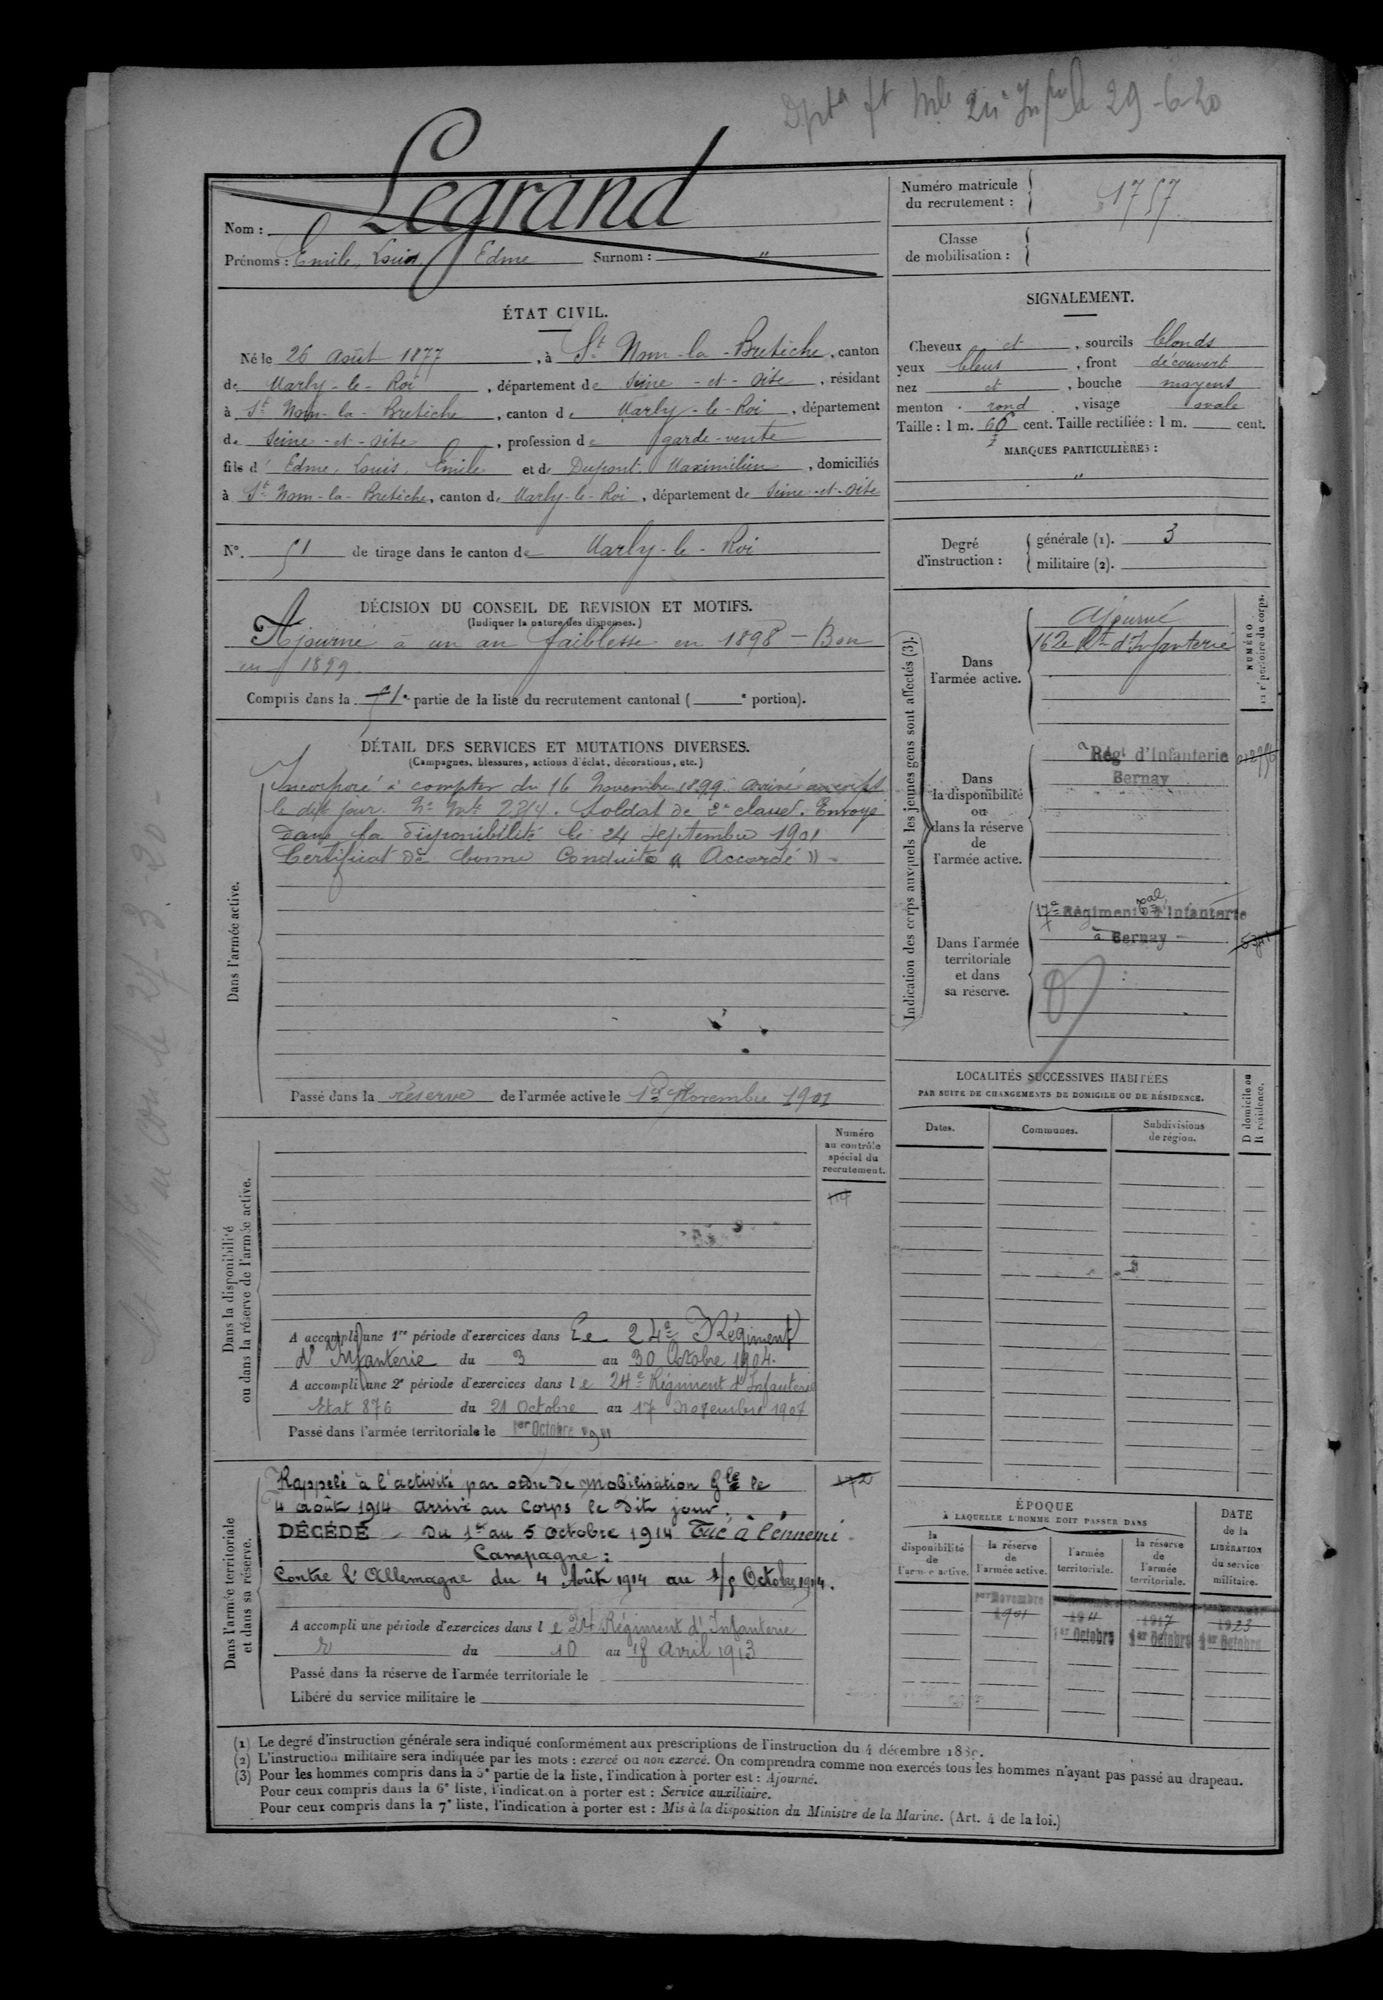 29-6-20
Legrand
Nom :
Prénoms : Emile, Louis, Edme Surnom : "
Numéro matricule du recrutement : 1757
Classe de mobilisation :
ÉTAT CIVIL.
Né le 26 août 1877, à St Nom-la-Bretèche, canton
de Marly-le-Roi, département de Seine-et-Oise, résidant
à St Nom-la-Bretèche, canton de Marly-le-Roi, département
de Seine-et-Oise, profession de garde-vente
fils d' Edme, Louis, Emile et de Dupont Maximilien, domiciliés
à St Nom-la-Bretèche, canton de Marly-le-Roi, département de Seine-et-Oise
N° 51 de tirage dans le canton de Marly-le-Roi
SIGNALEMENT.
Cheveux et, sourcils blonds
yeux bleus, front découvert
nez et, bouche moyens
menton rond, visage ovale
Taille : 1 m. 66 cent. Taille rectifiée : 1 m. cent.
MARQUES PARTICULIÈRES :
"
Degré d'instruction :
générale (1). 3
militaire (2).
DÉCISION DU CONSEIL DE REVISION ET MOTIFS.
(Indiquer la nature des dispenses.)
Ajourné à un an faiblesse en 1898 - Bon
en 1899
Compris dans la partie de la liste du recrutement cantonal ( e portion).
DÉTAIL DES SERVICES ET MUTATIONS DIVERSES.
(Campagnes, blessures, actions d'éclat, décorations, etc.)
Dans l'armée active.
Incorporé à compter du 16 Novembre 1899. arrivé au corps
le dit jour. N° Mle 2314. Soldat de 2e classe. Envoyé
dans la disponibilité le 24 septembre 1901
Certificat de bonne conduite " Accordé "
Passé dans la réserve de l'armée active le 1er Novembre 1901
Indication des corps auxquels les jeunes gens sont affectés (3).
NUMÉRO au répertoire du corps.
Dans l'armée active.
Ajourné
162e Rt d'Infanterie
Dans la disponibilité ou dans la réserve de l'armée active.
Régt d'Infanterie
Bernay
Dans l'armée territoriale et dans sa réserve.
17e Régiment Tal d'Infanterie
à Bernay
LOCALITÉS SUCCESSIVES HABITÉES
PAR SUITE DE CHANGEMENTS DE DOMICILE OU DE RÉSIDENCE.
Dates. Communes. Subdivisions de région. D domicile ou R résidence.
Dans la disponibilité ou dans la réserve de l'armée active.
Numéro au contrôle spécial du recrutement.
A accompli une 1re période d'exercices dans le 24e Régiment
d'Infanterie du 3 au 30 Octobre 1904.
A accompli une 2e période d'exercices dans le 24e Régiment d'Infanterie
Etat 876 du 21 Octobre au 17 novembre 1907
Passé dans l'armée territoriale le 1er Octobre 1911
Dans l'armée territoriale et dans sa réserve.
Rappelé à l'activité par ordre de mobilisation Gle le
4 août 1914 arrivé au Corps le dit jour.
DÉCÉDÉ - Du 1er au 5 octobre 1914 Tué à l'ennemi
Campagne :
Contre l'Allemagne du 4 Août 1914 au 1/5 Octobre 1914.
A accompli une période d'exercices dans le 24 Régiment d'Infanterie
du 10 au 18 avril 1913
Passé dans la réserve de l'armée territoriale le
Libéré du service militaire le
ÉPOQUE
À LAQUELLE L'HOMME DOIT PASSER DANS
la disponibilité de l'armée active.
la réserve de l'armée active.
l'armée territoriale.
la réserve de l'armée territoriale.
DATE de la LIBÉRATION du service militaire.
1er Novembre
1901 1911 1917 1923
1er Octobre 1er Octobre 1er Octobre
(1) Le degré d'instruction générale sera indiqué conformément aux prescriptions de l'instruction du 4 décembre
(2) L'instruction militaire sera indiquée par les mots : exercé ou non exercé. On comprendra comme non exercés tous les hommes n'ayant pas passé au drapeau.
(3) Pour les hommes compris dans la 5e partie de la liste, l'indication à porter est : Ajourné.
Pour ceux compris dans la 6e liste, l'indication à porter est : Service auxiliaire.
Pour ceux compris dans la 7e liste, l'indication à porter est : Mis à la disposition du Ministre de la Marine. (Art. 4 de la loi.)